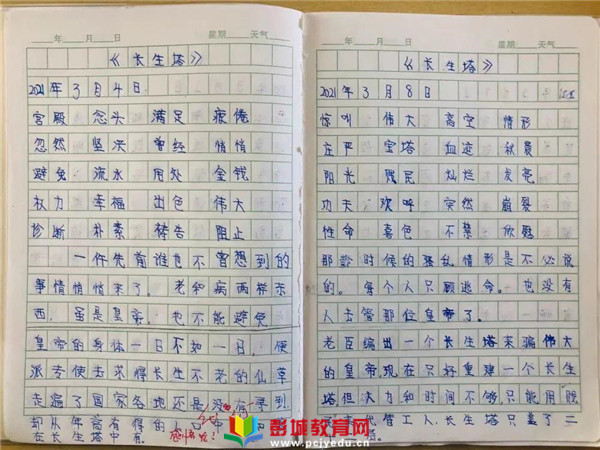 年 月 日 星期 天气
《长生塔》
2021年3月4日
宫殿 念头 满足 疲倦
忽然 坚决 曾经 悄悄
避免 流水 用处 金钱
权力 幸福 出色 伟大
诊断 朴素 祷告 阻止
一件先前谁也不曾想到的
事情悄悄来了。老和病两样东
西,虽是皇帝,也不能避免
皇帝的身体一日不如一日,便
派专使去求得长生不老的仙草
走遍了国家各地还是没有寻到
却从年高有得的人口中
在长生塔中有。
年 月 日 星期 天气
《长生塔》
2021年3月8日
惊叫 伟大 高空 情形
庄严 宝塔 血迹 秋晨
阳光 贱民 灿烂 发亮
功夫 欢呼 突然 崩裂
性命 喜色 不禁 欣慰
那时候的骚乱情形是不必说
的。每个人只顾逃命。也没有
人去管那位皇帝了。
老臣编出一个长生塔来骗伟大
的皇帝,现在只好重建一个长生
塔但人力和时间不够只能用贱
代替工人,长生塔只盖了二
彭城教育网
www.pcjyedu.cn